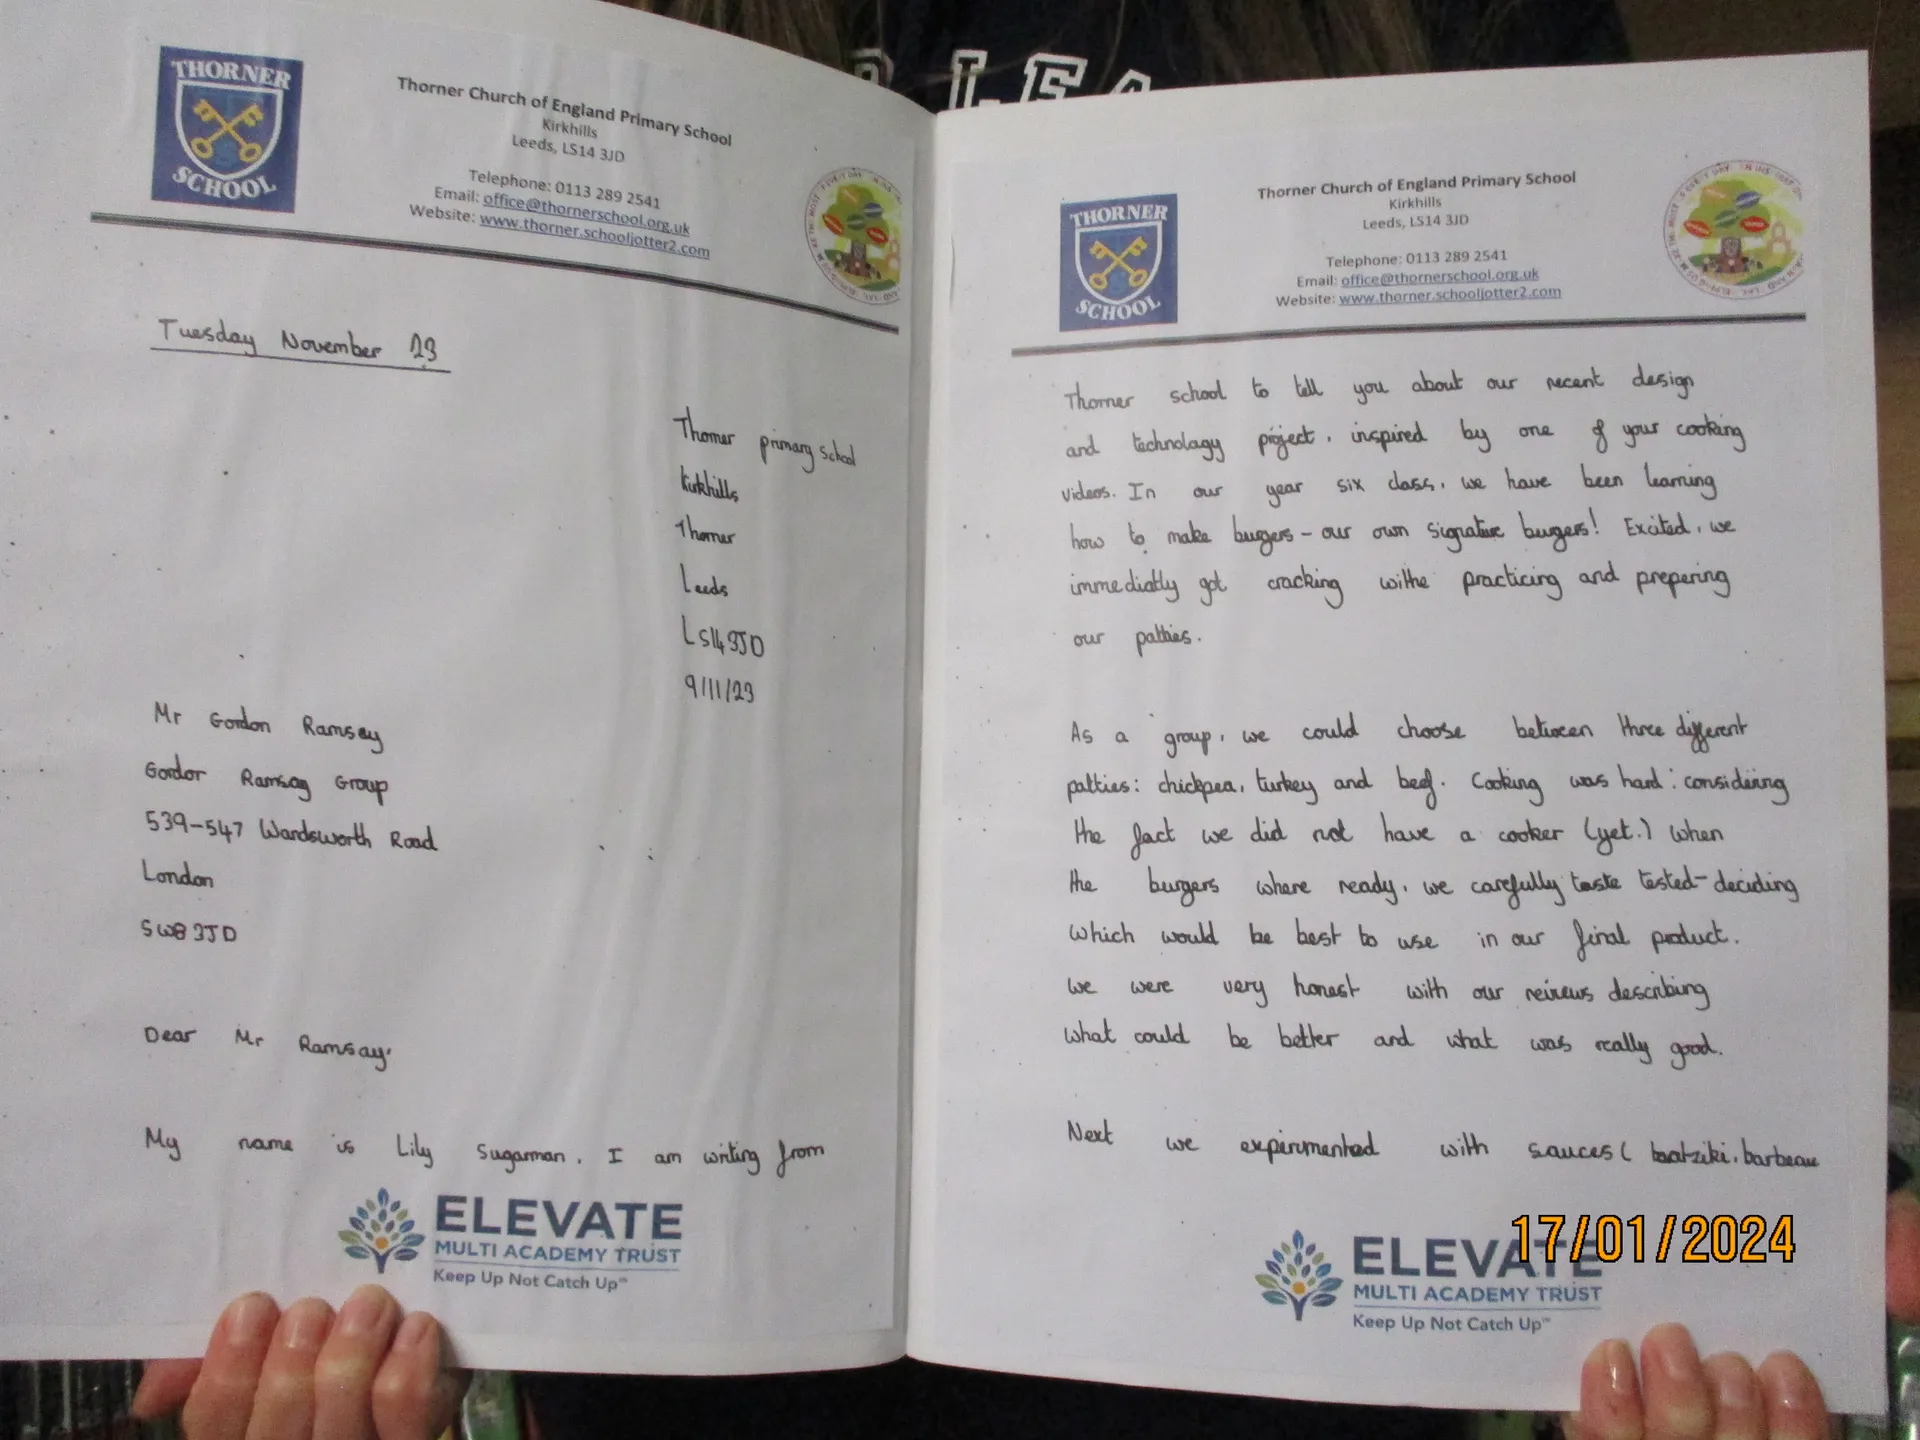 THORNER
SCHOOL
Thorner Church of England Primary School
Kirkhills
Leeds, LS14 3JD
Telephone: 0113 289 2541
Email: office@thornerschool.org.uk
Website: www.thorner.schooljotter2.com
Tuesday November 23
Thorner primary school
Kirkhills
Thorner
Leeds
LS14 3JD
9/11/23
Mr Gordon Ramsay
Gordor Ramsay Group
539-547 Wandsworth Road
London
SW8 3JD
Dear Mr Ramsay,
My name is Lily Sugarman. I am writing from
ELEVATE
MULTI ACADEMY TRUST
Keep Up Not Catch Up™
THORNER
SCHOOL
Thorner Church of England Primary School
Kirkhills
Leeds, LS14 3JD
Telephone: 0113 289 2541
Email: office@thornerschool.org.uk
Website: www.thorner.schooljotter2.com
Thorner school to tell you about our recent design
and technology project, inspired by one of your cooking
videos. In our year six class, we have been learning
how to make burgers - our own signature burgers! Excited, we
immediatly got cracking withe practicing and prepering
our patties.
As a group, we could choose between three different
patties: chickpea, turkey and beef. Cooking was hard: considering
the fact we did not have a cooker (yet.) When
the burgers where ready, we carefully taste tested-deciding
which would be best to use in our final product.
We were very honest with our reviews describing
what could be better and what was really good.
Next we experimented with sauces (
ELEVATE
MULTI ACADEMY TRUST
Keep Up Not Catch Up™
17/01/2024